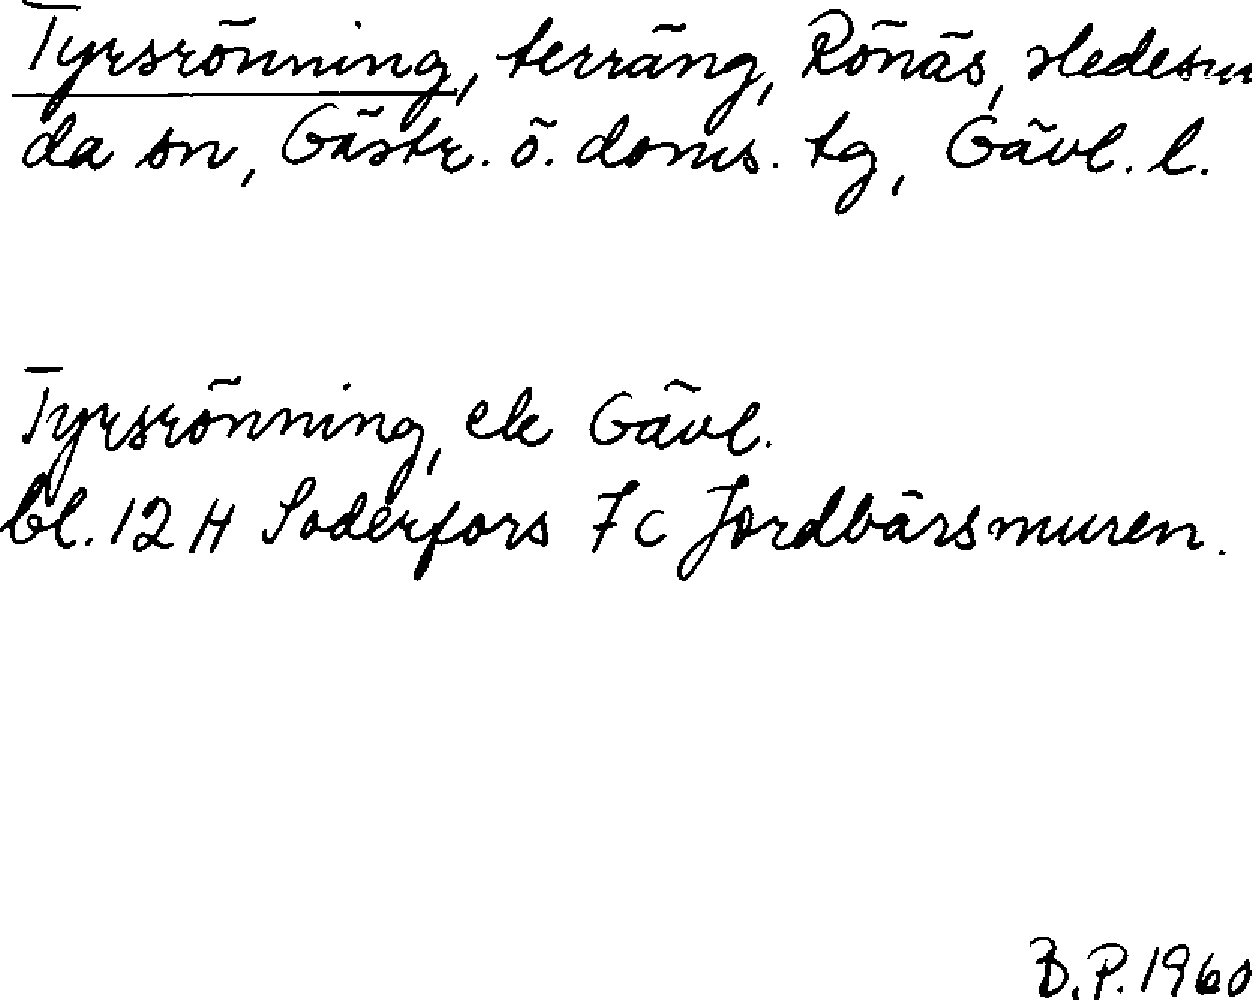 Tyrsrönning, terräng, Rönäs, Hedesun
da sn, Gästr. ö. doms. tg, Gävl. l.
Tyrsrönning, ek Gävl.
bl. 12 H Soderfors 7 c Jordbärsmuren.
B.P. 1960